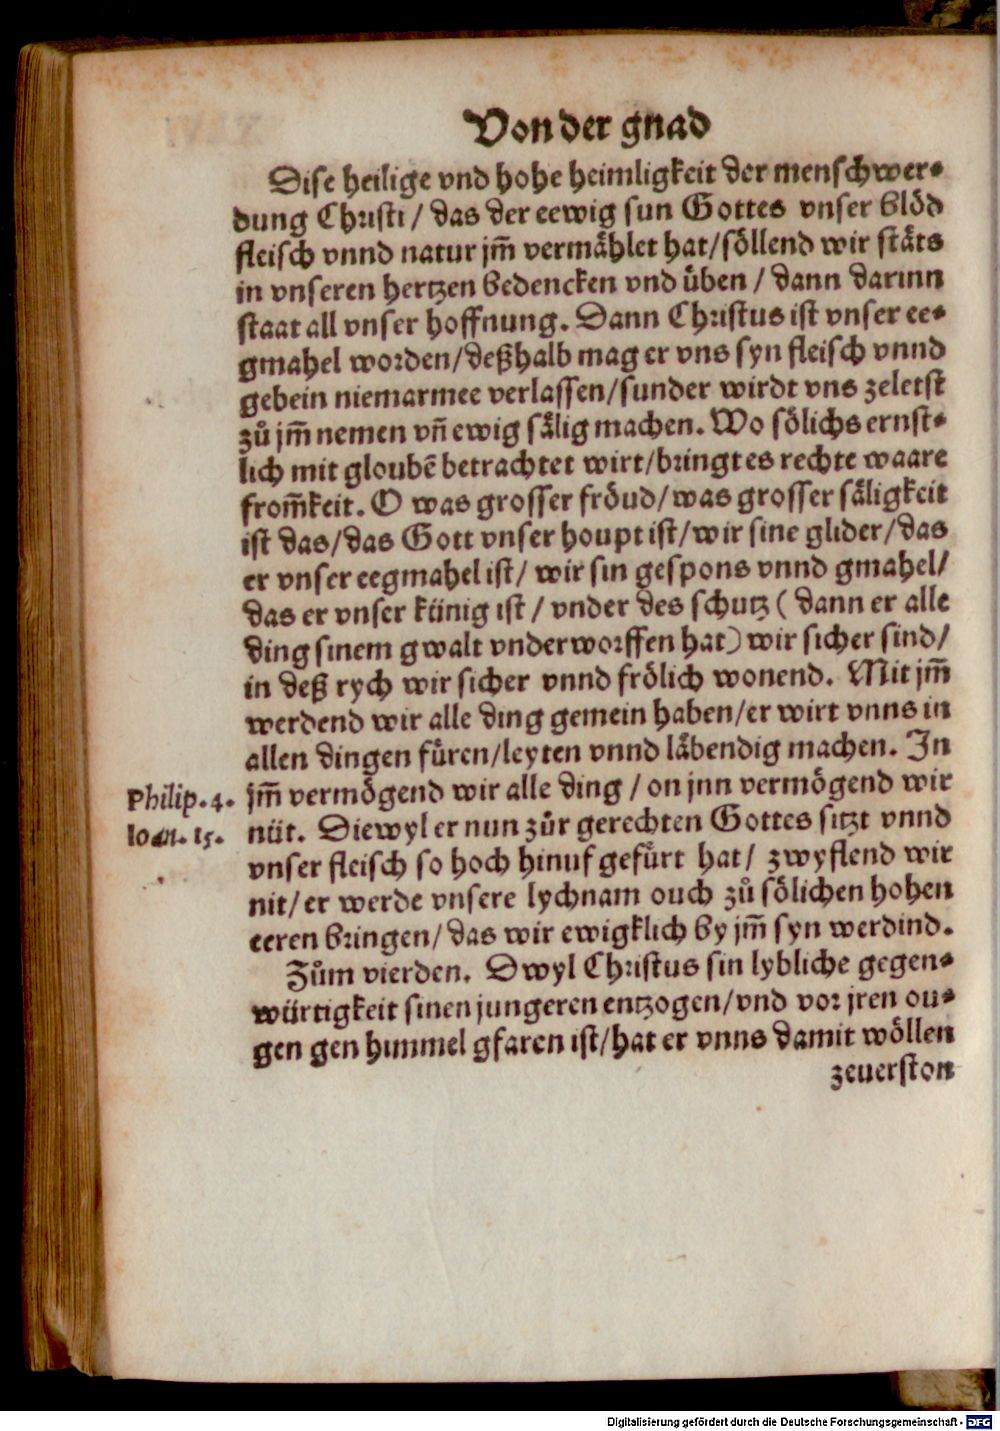 Von der gnad
Dise heilige vnd hohe heimligkeit der menschwer⸗
dung Christi / das der eewig sun Gottes vnser blöd
fleisch vnnd natur jm̃ vermählet hat/söllend wir stäts
in vnseren hertzen bedencken vnd üben / dann darinn
staat all vnser hoffnung. Dann Christus ist vnser ee⸗
gmahel worden/deßhalb mag er vns syn fleisch vnnd
gebein niemarmee verlassen/sunder wirdt vns zeletst
zů jm̃ nemen vñ ewig sälig machen. Wo sölichs ernst⸗
lich mit gloubẽ betrachtet wirt/bringt es rechte waare
from̃keit. O was grosser fröud/was grosser säligkeit
ist das/das Gott vnser houpt ist/wir sine glider/das
er vnser eegmahel ist/ wir sin gespons vnnd gmahel/
das er vnser künig ist / vnder des schutz ( dann er alle
ding sinem gwalt vnderworffen hat) wir sicher sind/
in deß rych wir sicher vnnd frölich wonend. Mit jm̃
werdend wir alle ding gemein haben/er wirt vnns in
allen dingen füren/leyten vnnd läbendig machen. In
Philip. 4. jm̃ vermögend wir alle ding / on jnn vermögend wir
Ioan. 15. nüt. Diewyl er nun zůr gerechten Gottes sitzt vnnd
vnser fleisch so hoch hinuf gefürt hat/ zwyflend wir
nit/er werde vnsere lychnam ouch zů sölichen hohen
eeren bringen/das wir ewigklich by jm̃ syn werdind.
Zům vierden. Dwyl Christus sin lybliche gegen⸗
würtigkeit sinen jungeren entzogen/vnd vor jren ou⸗
gen gen himmel gfaren ist/hat er vnns damit wöllen
zeuerston
Digitalisierung gefördert durch die Deutsche Forschungsgemeinschaft - DFG